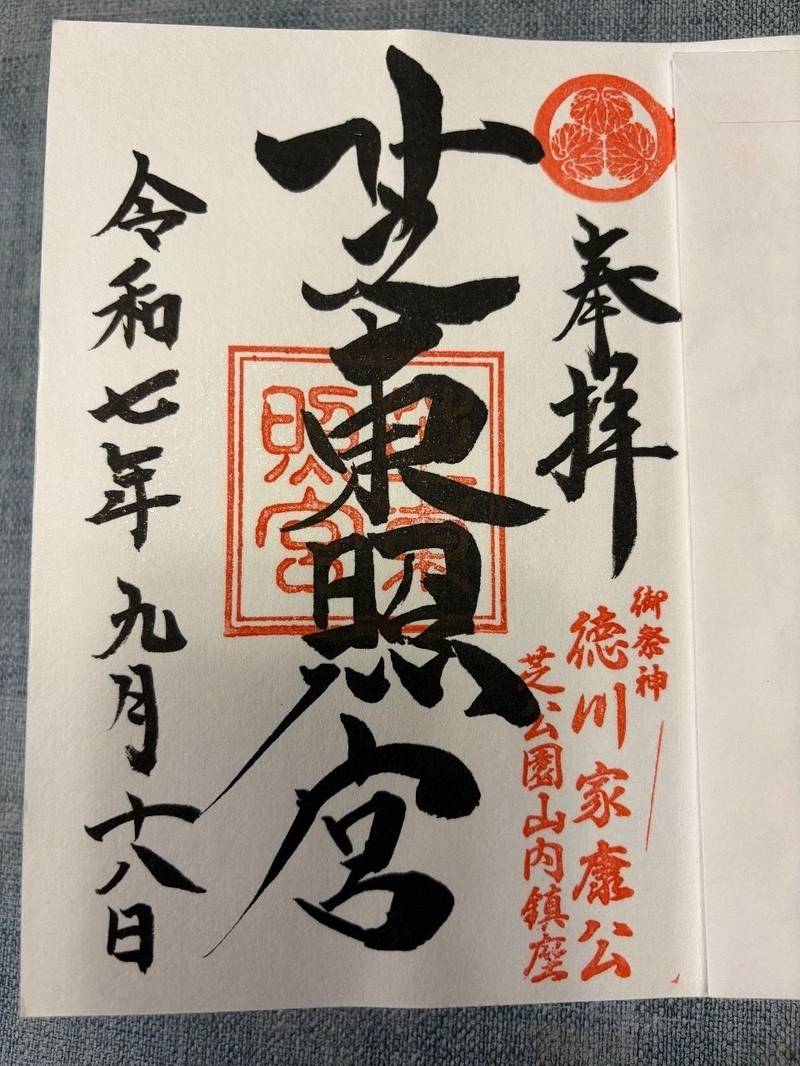 奉拝
御祭神
徳川家康公
芝公園山内鎮座
芝東照宮
芝東照宮
令和七年九月十八日